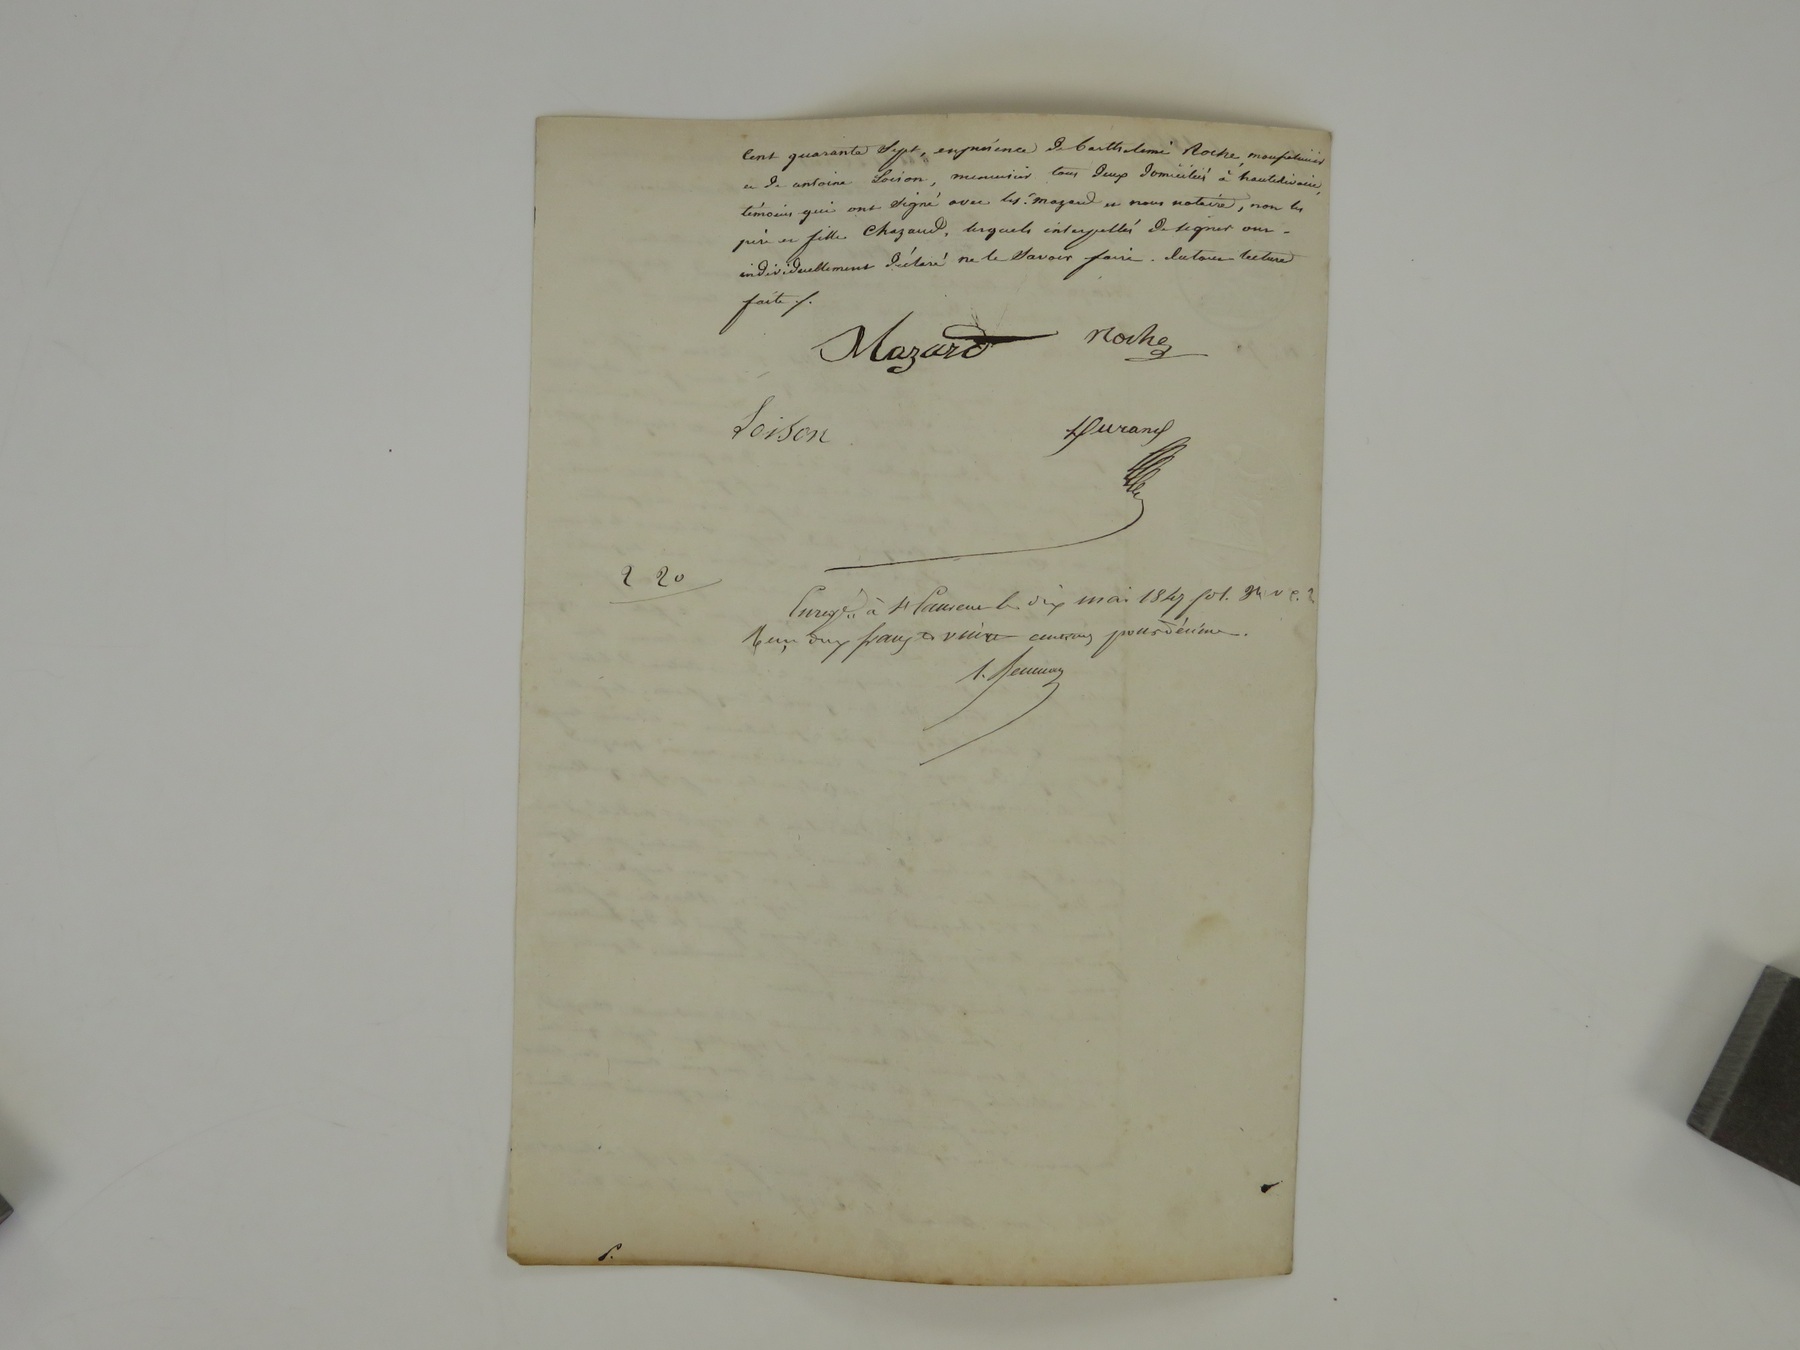 cent quarante Sept, en présence de Barthelemi Roche, 
et de antoine Loison, menuisier tous deux domiciliés à hauterivoire,
témoins qui ont signé avec led. Sr. mazard et nous notaire, non les
père et fille Chazaud, lesquels interpellés de signer ont
individuellement déclaré ne le Savoir faire. lecture
faite ./.
Mazard Roche
Loison Durand
2 20
Enregé. à St Laurent le dix mai 1847 fol. v c. 2
Reçu deux francs et vingt centimes pour décime.